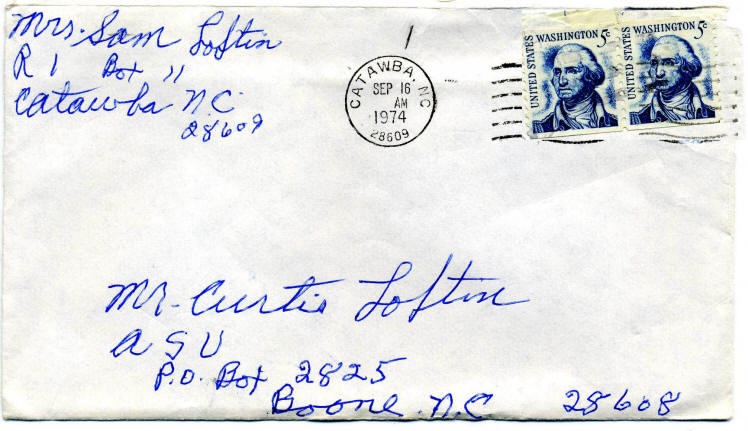 Mrs. Sam Loftin
R 1 Box 11
Catawba N.C.
28609
CATAWBA, NC
SEP 16
AM
1974
28609
UNITED STATES
WASHINGTON 5c
UNITED STATES
WASHINGTON 5c
Mr. Curtis Loftin
ASU
P.O. Box 2825
Boone N.C 28608